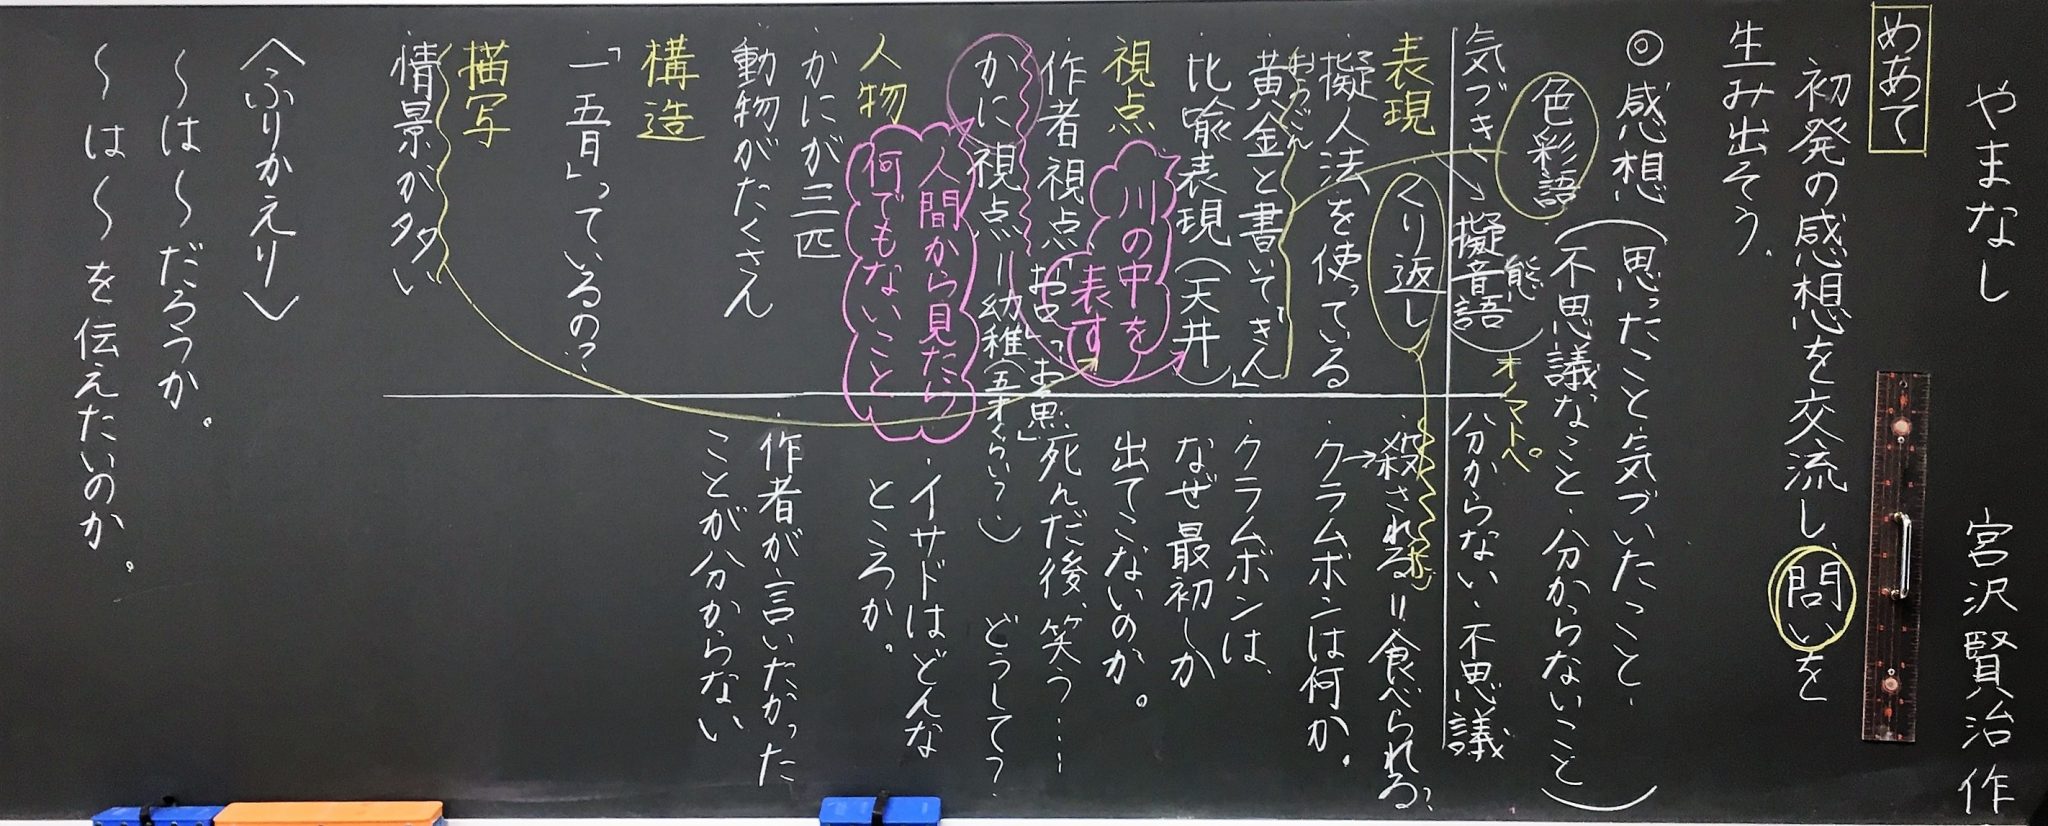 やまなし　宮沢賢治 作
めあて
初発の感想を交流し、問いを
生み出そう。
◎感想（思ったこと・気づいたこと・
不思議なこと・分からないこと）
色彩語
擬音語
態
オノマトペ
気づき
分からない・不思議
表現
くり返し
擬人法を使っている
黄金と書いて「きん」
おうごん
比喩表現（天井）
視点
川の中を
表す
作者視点「お口」「お魚」
かに視点＝幼稚（五才くらい？）
人間から見たら
何でもないこと
人物
かにが三匹
動物がたくさん
構造
「一、五月」っているの？
描写
情景が多い
殺される＝食べられる？
クラムボンは何か。
クラムボンは、
なぜ最初しか
出てこないのか。
死んだ後、笑う……
どうして？
イサドはどんな
ところか。
作者が言いたかった
ことが分からない
〈ふりかえり〉
〜は〜だろうか。
〜は〜を伝えたいのか。